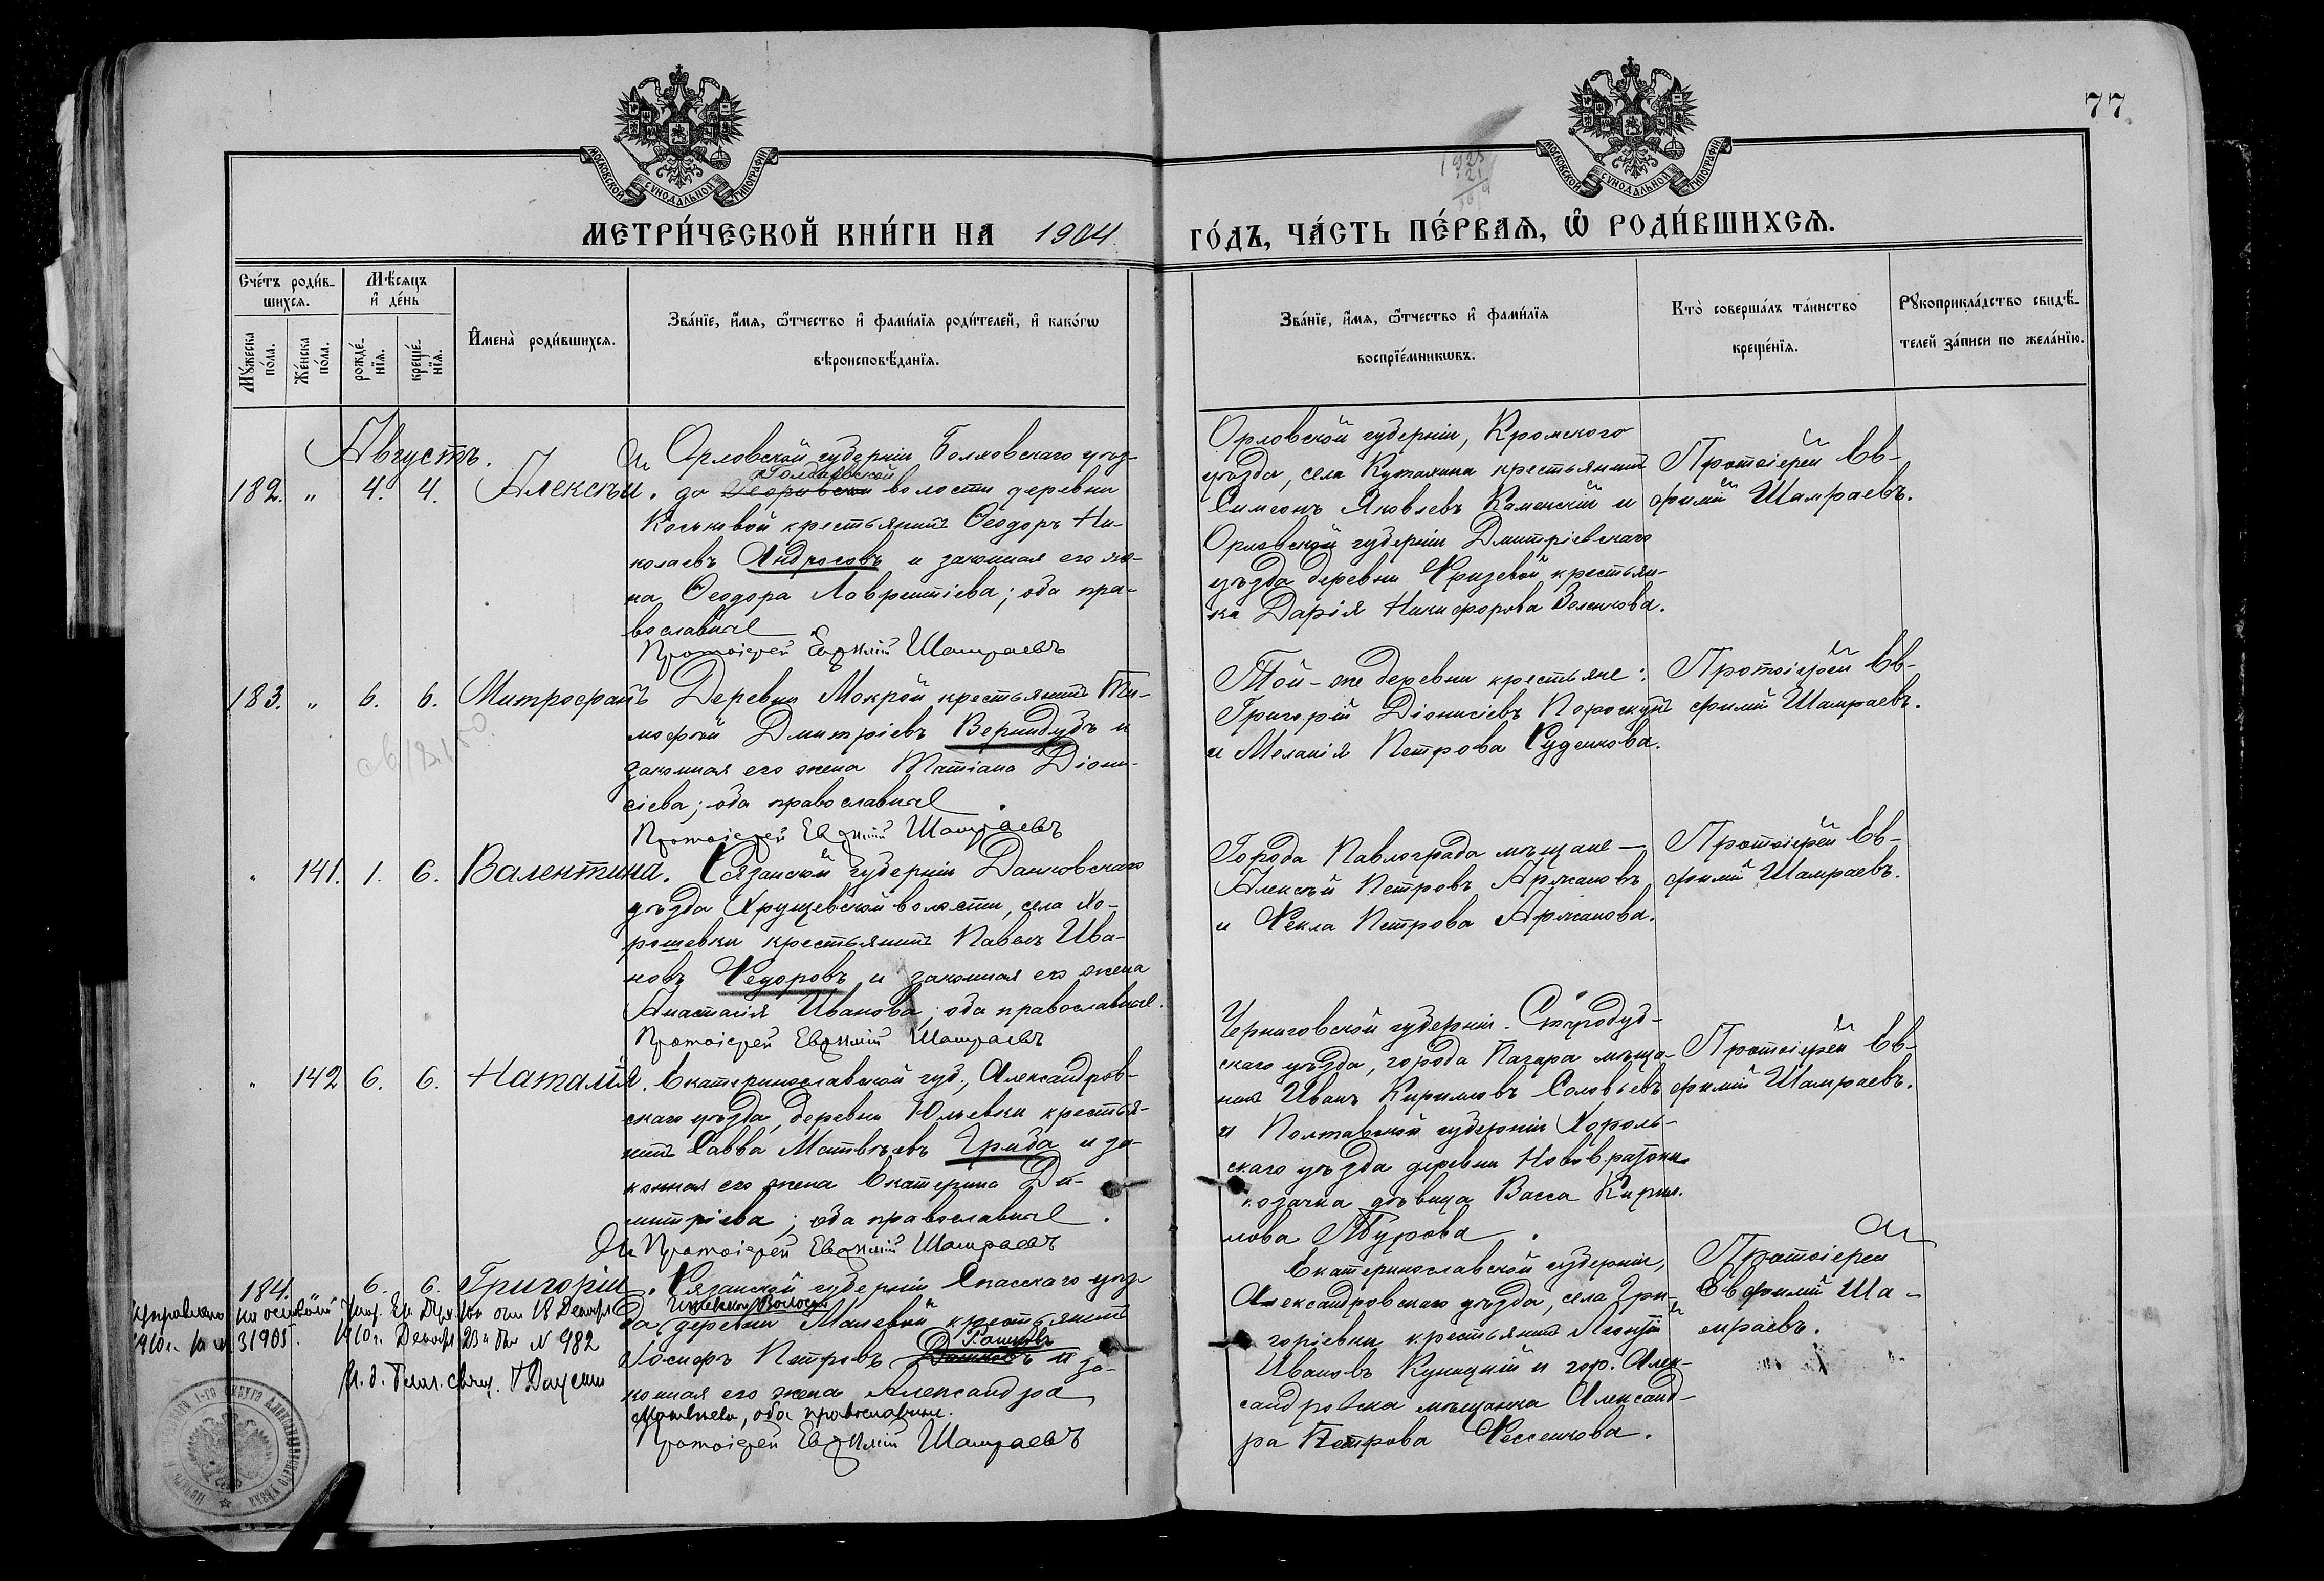 77
МОСКОВСКОЙ СѴНОДАЛЬНОЙ ТИПОГРАФІИ
МОСКОВСКОЙ СѴНОДАЛЬНОЙ ТИПОГРАФІИ
МЕТРИ́ЧЕСКОЙ КНИ́ГИ НА 1904 ГО́ДЪ, ЧА́СТЬ ПЕ́РВАѦ, Ѡ҆ РОДИ́ВШИХСѦ.
Сче́тъ роди́в-
шихсѧ.
Мꙋ́жеска
по́ла.
Же́нска
по́ла.
Мѣ́сяцъ
и҆ де́нь
рожде́-
нїѧ.
креще́-
нїѧ.
И҆мена̀ роди́вшихсѧ.
Зва́нїе, и҆́мѧ, ѻ҆́тчество и҆ фами́лїѧ роди́телей, и҆ како́гѡ
вѣроисповѣ́данїѧ.
Зва́нїе, и҆́мѧ, ѻ҆́тчество и҆ фами́лїѧ
воспрїе́мникѡвъ.
Кто̀ соверша́лъ та́инство
креще́нїѧ.
Рꙋкоприкла́дство свидѣ́-
телей за́писи по жела́нїю.
Августъ.
182. " 4. 4. Алексѣй.
Орловской губерніи Болховскаго уѣз-
да волости деревни
крестьянинъ Ѳеодоръ Ни-
колаевъ Андросовъ и законная его же-
на Ѳеодора Лаврентіева; оба пра-
вославные
Протоіерей Евфимій Шамраевъ
Орловской губерніи, Кромского
уѣзда, села крестьянинъ
Симеонъ Яковлевъ Каменскій и
Орловской губерніи Дмитріевскаго
уѣзда деревни крестьян-
ка Дарія Никифорова Зеленкова.
Протоіерей Ев-
фимій Шамраевъ.
183. " 6. 6. Митрофанъ
Деревни Мокрой крестьянинъ Ти-
мофей Дмитріевъ Вернидубъ и
законная его жена Татіана Діони-
сіева; оба православные.
Протоіерей Евфимій Шамраевъ
Той-же деревни крестьяне:
Григорій Діонисіевъ
и Меланія Петрова Руденкова.
Протоіерей Ев-
фимій Шамраевъ.
" 141. 1. 6. Валентина.
Рязанской губерніи Данковскаго
уѣзда Хрущевской волости, села Хо-
рошевки крестьянинъ Павелъ Ива-
новъ Ѳедоровъ и законная его жена
Анастасія Иванова; оба православные.
Протоіерей Евфимій Шамраевъ
Города Павлограда мѣщане —
Алексѣй Петровъ Аржановъ
и Ѳекла Петрова Аржанова.
Протоіерей Ев-
фимій Шамраевъ.
" 142 6. 6. Наталія.
Екатеринославской губ., Александров-
скаго уѣзда, деревни Юльевки крестья-
нинъ Савва Матвѣевъ Грида и за-
конная его жена Екатерина Ди-
митріева; оба православные.
Протоіерей Евфимій Шамраевъ
Черниговской губерніи Стародуб-
скаго уѣзда, города Пагара мѣща-
нинъ Иванъ Кирилловъ Соловьевъ
и Полтавской губерніи Хороль-
скаго уѣзда деревни
козачка дѣвица Васса Кирил-
лова
Протоіерей Ев-
фимій Шамраевъ.
184. 6. 6. Григорій.
Рязанской губерніи Спасскаго уѣз-
да, деревни Малевки крестьянинъ
Іосифъ Петровъ и за-
конная его жена Александра
Матвѣева, оба православные.
Протоіерей Евфимій Шамраевъ
Екатеринославской губерніи,
Александровскаго уѣзда, села Гри-
горіевки крестьянинъ Леонтій
Ивановъ Куницкій и гор. Алек-
сандровска мѣщанка Александ-
ра Петрова Фесенкова.
Протоіерей
Евфимій Ша-
мраевъ.
Исправлено на основаніи Указ. Ек. Дух. Кон. отъ 18 Декабря
1910 г. за № 31905. 1910 г. Декабря 23 дня № 982